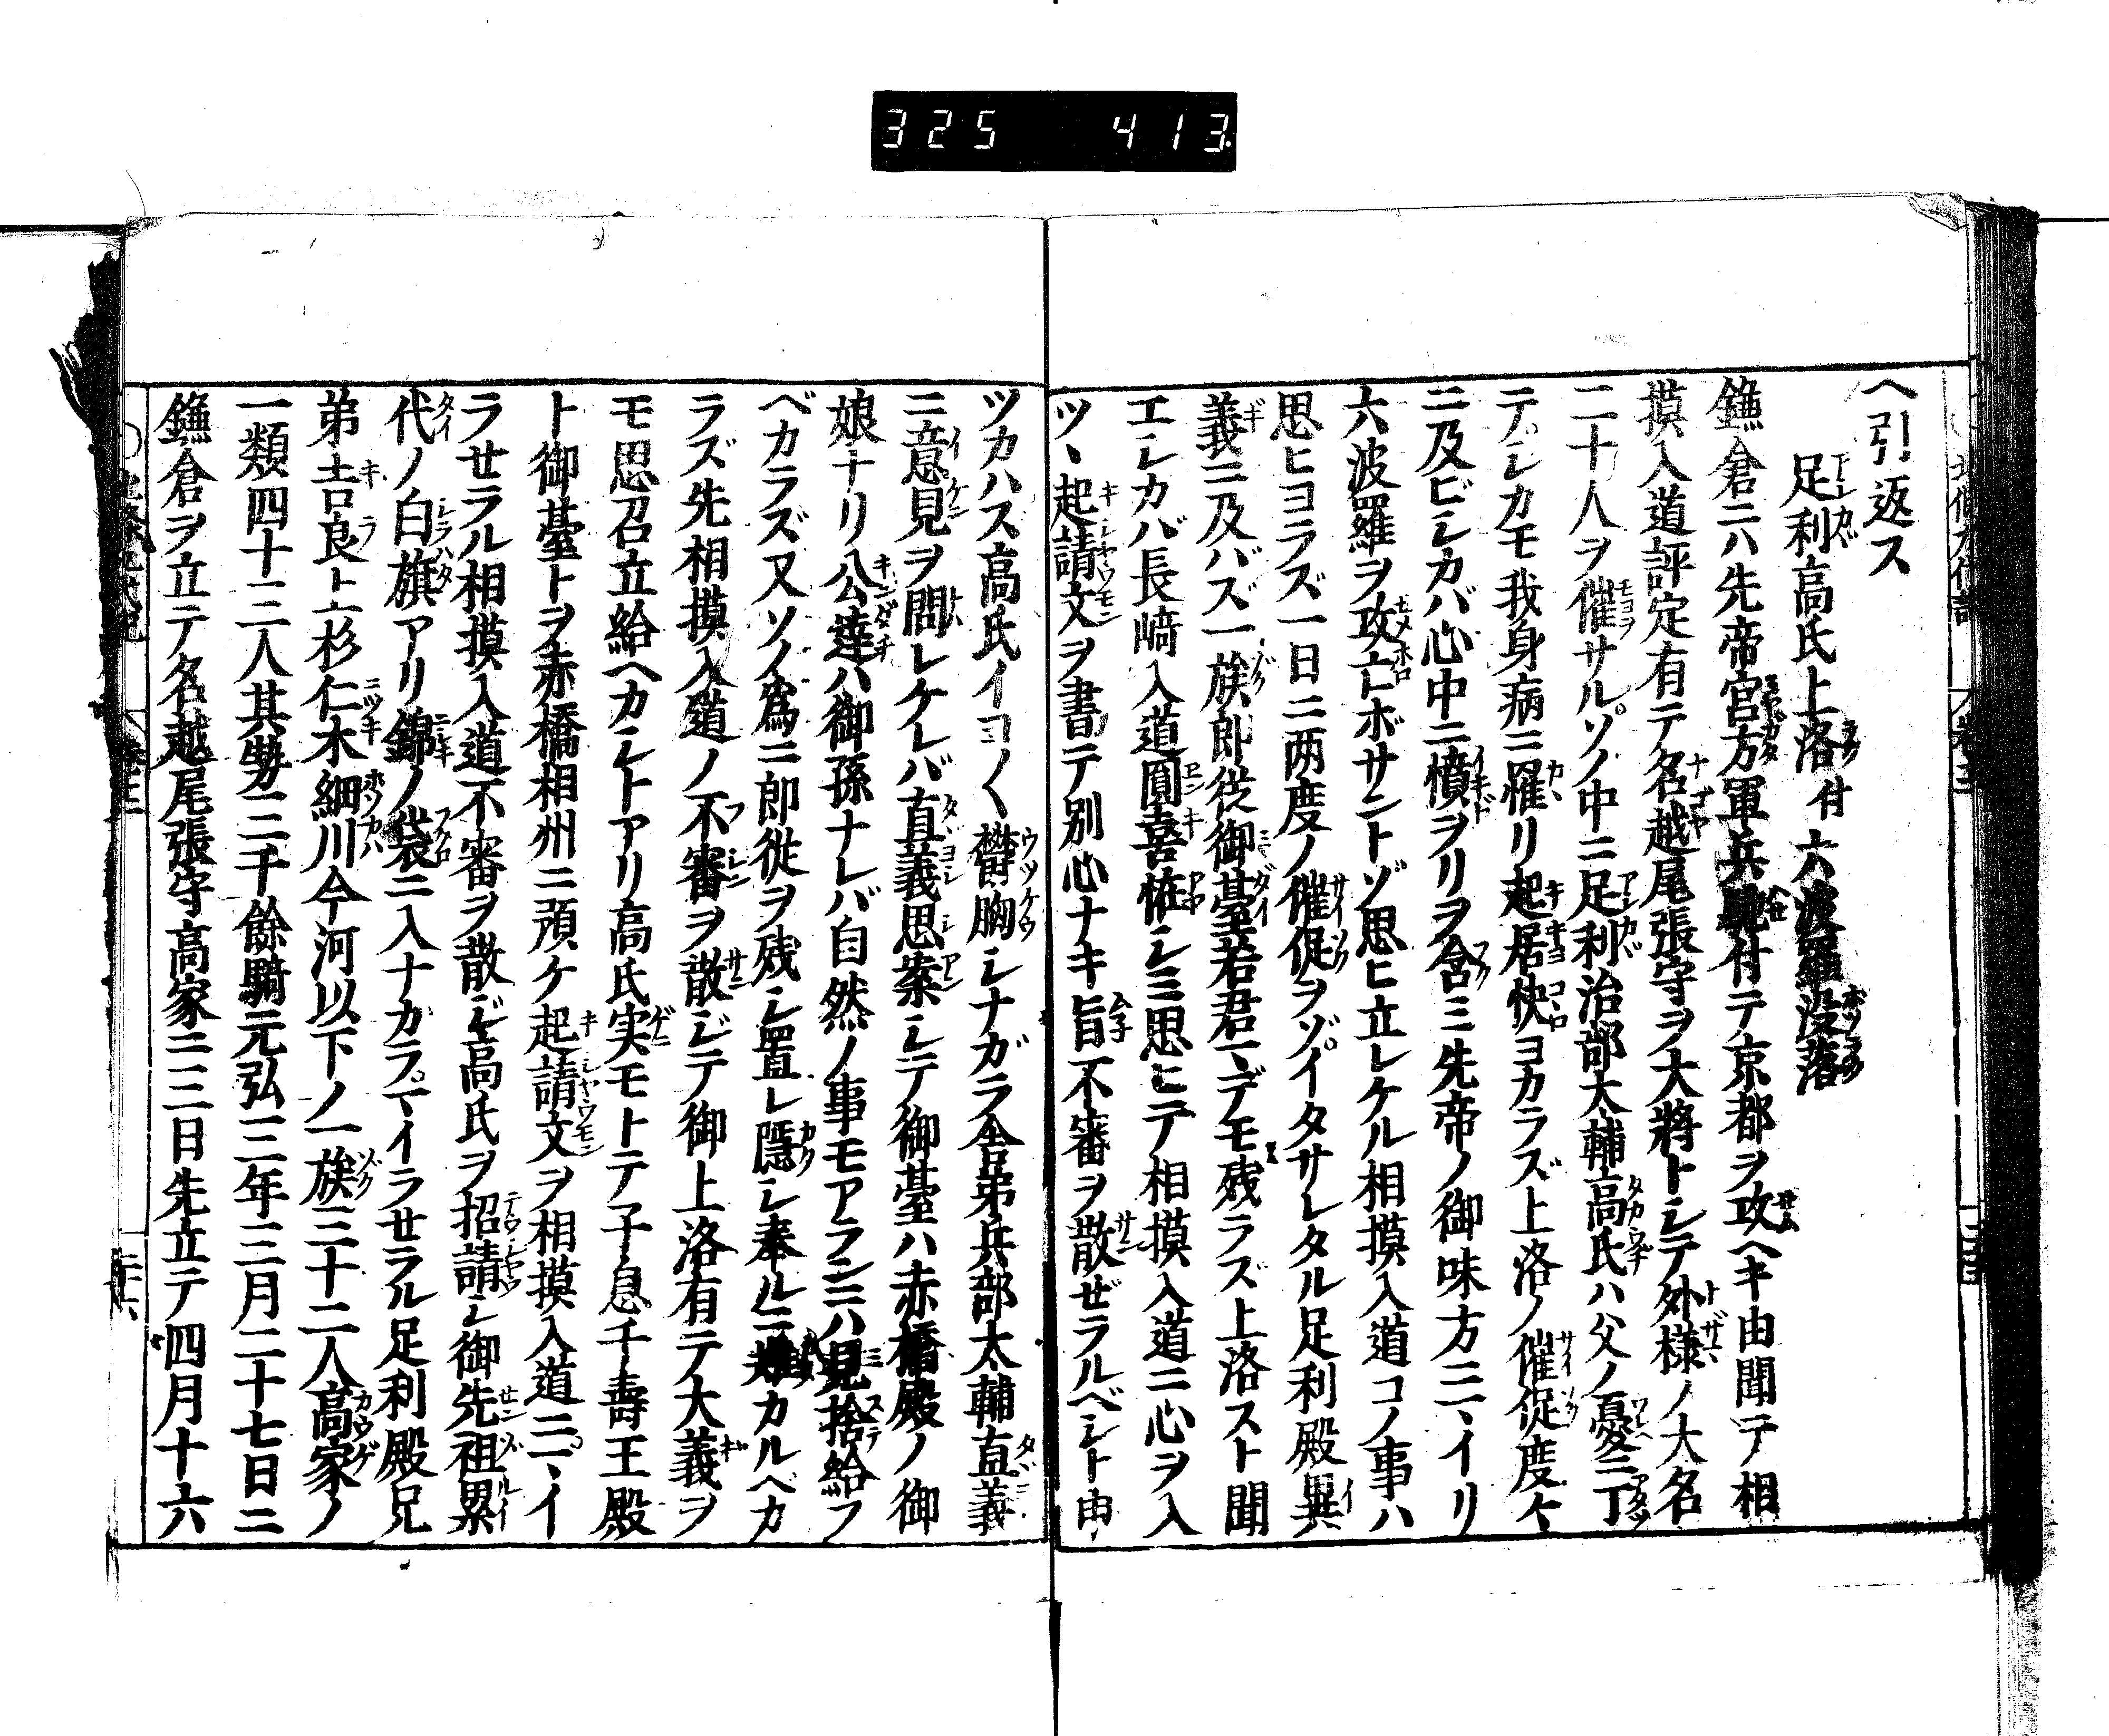 325 413
ヘ引返ス
足利高氏上洛付六波羅没落
鎌倉ニハ先帝宮方軍兵馳付テ京都ヲ攻ヘキ由聞テ相
摸入道評定有テ名越尾張守ヲ大將トシテ外様ノ大名
二十人ヲ催サルソノ中ニ足利治部大輔高氏ハ父ノ憂ニ丁
テシカモ我身病ニ罹リ起居快ヨカラズ上洛ノ催促度々
ニ及ビシカバ心中ニ憤ヲリヲ含ミ先帝ノ御味方ニマイリ
六波羅ヲ攻亡ボサントゾ思ヒ立レケル相摸入道コノ事ハ
思ヒヨラズ一日ニ两度ノ催促ヲゾイタサレタル足利殿異
義ニ及バズ一族郎従御臺若君マデモ残ラズ上洛スト聞
エシカバ長﨑入道圓喜恠シミ思ヒテ相摸入道ニ心ヲ入
ツヽ起請文ヲ書テ別心ナキ旨不審ヲ散ぜラルベシト申
ツカハス高氏イヨ〱欝胸シナガラ舎弟兵部太輔直義
ニ意見ヲ問レケレバ直義思案シテ御臺ハ赤橋殿ノ御
娘ナリ公達ハ御孫ナレバ自然ノ事モアランニハ見捨給フ
ベカラズ又ソノ爲ニ郎従ヲ残シ置レ隱シ奉ルニ難カルベカ
ラズ先相摸入道ノ不審ヲ散ジテ御上洛有テ大義ヲ
モ思召立給ヘカシトアリ高氏実モトテ子息千壽王殿
ト御臺トヲ赤橋相州ニ預ケ起請文ヲ相摸入道ニマイ
ラせラル相摸入道不審ヲ散ジ高氏ヲ招請シ御先祖累
代ノ白旗アリ錦ノ袋ニ入ナカラマイラせラル足利殿兄
弟吉良上杉仁木細川今河以下ノ一族三十二人高家ノ
一類四十三人其勢三千餘騎元弘三年三月二十七日ニ
鎌倉ヲ立テ名越尾張守高家ニ三日先立テ四月十六